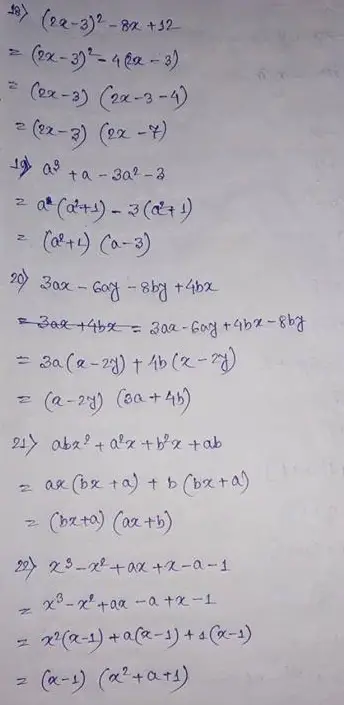 18) (2x-3)² - 8x + 12
= (2x-3)² - 4(2x - 3)
= (2x-3) (2x-3-4)
= (2x-3) (2x-7)
19) a³ + a - 3a² - 3
= a(a²+1) - 3(a²+1)
= (a²+1) (a-3)
20) 3ax - 6ay - 8by + 4bx
= 3ax + 4bx = 3ax - 6ay + 4bx - 8by
= 3a(x-2y) + 4b(x-2y)
= (x-2y) (3a+4b)
21) abx² + a²x + b²x + ab
= ax(bx+a) + b(bx+a)
= (bx+a) (ax+b)
22) x³ - x² + ax + x - a - 1
= x³ - x² + ax - a + x - 1
= x²(x-1) + a(x-1) + 1(x-1)
= (x-1) (x² + a + 1)